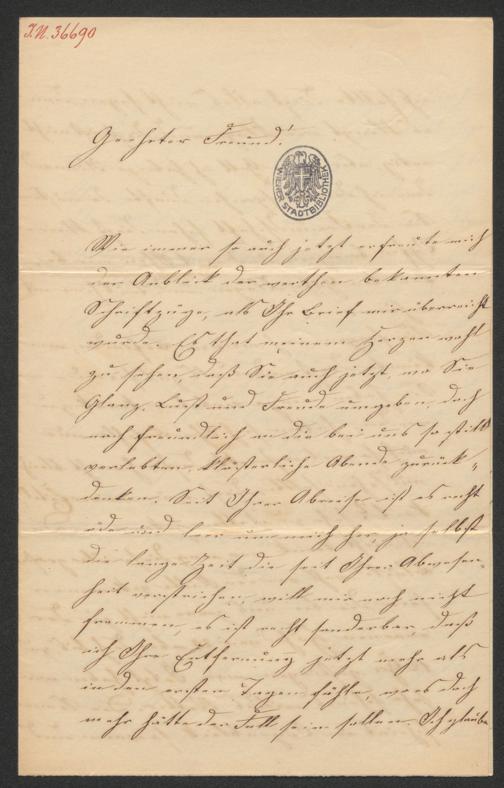 I.N. 36690
Geehrter Freund!
WIENER STADTBIBLIOTHEK
Wie immer so auch jetzt erfreute mich
der Anblick der werthen bekannten
Schriftzüge, als Ihr Brief mir überreicht
wurde. Es that meinem Herzen wohl
zu sehen, daß Sie auch jetzt, wo Sie
Glanz, Lust und Freude umgeben, doch
noch freundlich an die bei uns so still
verlebten, klösterliche Abende zurück-
denken. Seit Ihrer Abreise ist es recht
öde und leer um mich her, ja selbst
die lange Zeit die seit Ihrer Abwesen-
heit verstrichen, will mir noch nicht
frommen, es ist recht sonderbar, daß
ich Ihre Entfernung jetzt mehr als
in den ersten Tagen fühle, wo es doch
mehr hätte der Fall sein sollen. Ich glaube